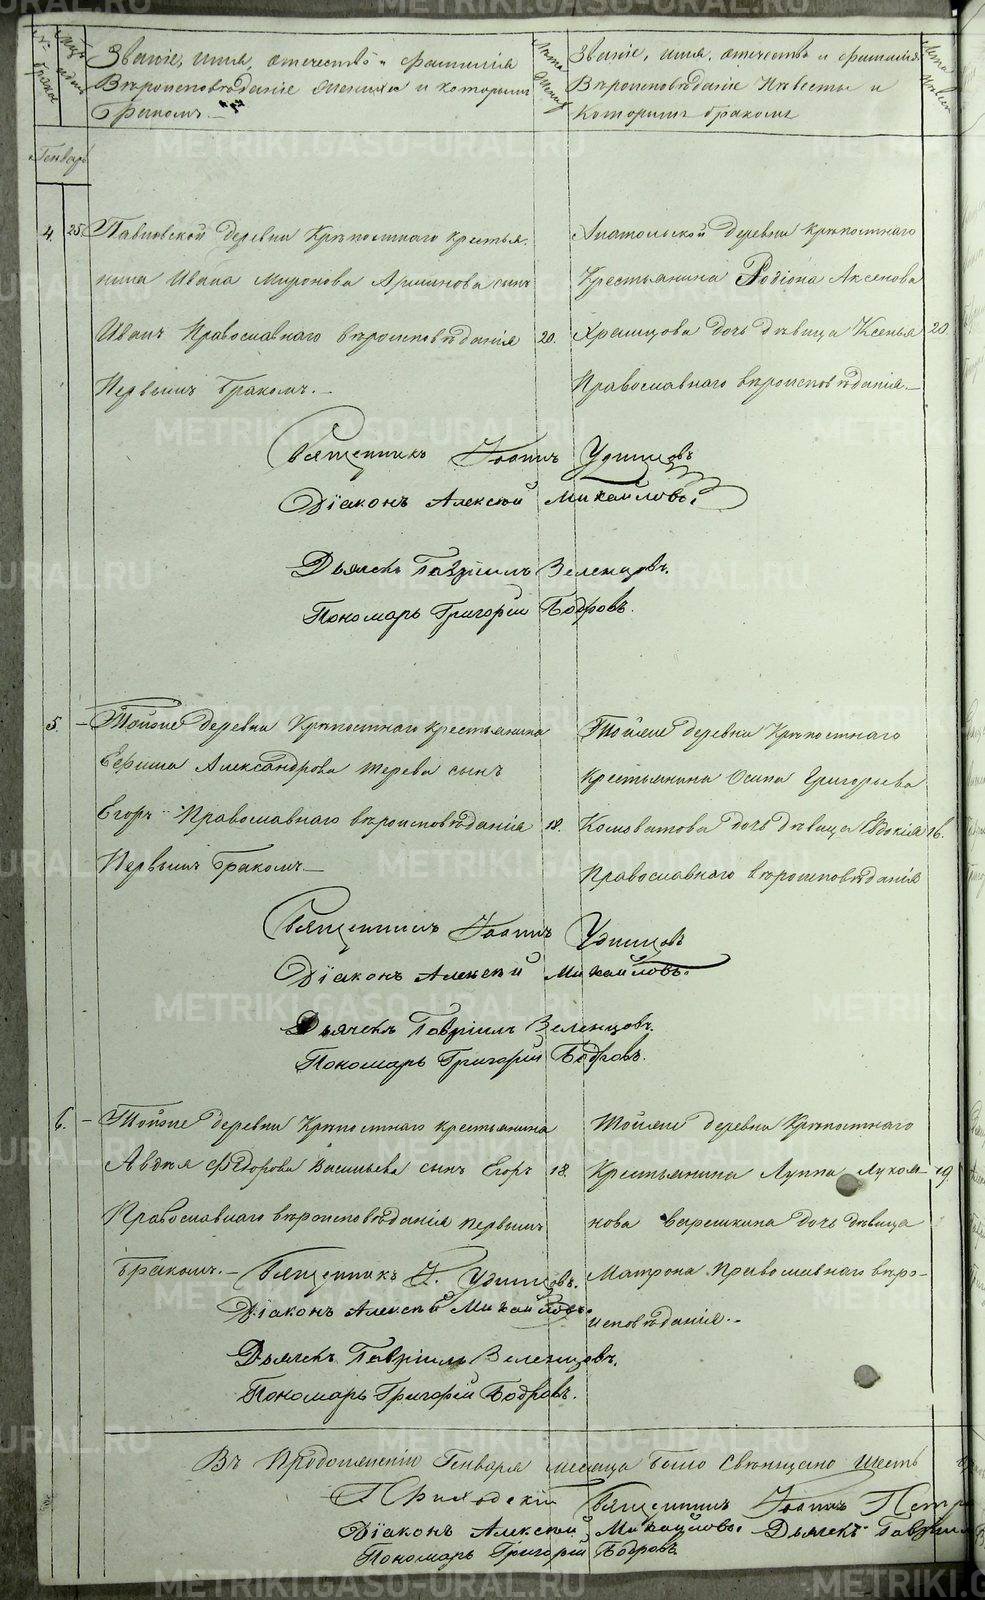 № браков
Мцъ и день
Званіе, имя, отечество и фамилія
Вѣроисповѣданіе Жениха и которымъ
бракомъ
Лѣта Жениха
Званіе, имя, отечество и фамилія
Вѣроисповѣданіе Невесты и
Которымъ бракомъ
Лѣта Невес
Генварь
4. 25. Павловской деревни Крѣпостнаго крестья-
нина Ивана Миронова сынъ
Иванъ Православнаго вѣроисповѣданія 20.
Первымъ бракомъ.-
Анатольской деревни крѣпостнаго
Крестьянина Родіона Аксенова
Храмцова дочь дѣвица Ксенья 20.
Православнаго вѣроисповѣданія.-
Священникъ Іоаннъ Удинцовъ
Діаконъ Алексѣй Михайловъ.
Дьячекъ Гавріилъ Зеленцовъ.
Пономарь Григорій Бобровъ.
5. - Тойже деревни Крѣпостнаго крестьянина
Ефима Александрова Терева сынъ
Егоръ Православнаго вѣроисповѣданія 18.
Первымъ бракомъ.-
Тойже деревни Крѣпостнаго
Крестьянина Осипа Григорьева
Комоватова дочь дѣвица Евдокія 16.
Православнаго вѣроисповѣданія
Священникъ Іоаннъ Удинцовъ
Діаконъ Алексѣй Михайловъ.
Дьячекъ Гавріилъ Зеленцовъ.
Пономарь Григорій Бобровъ.
6. - Тойже деревни Крѣпостнаго крестьянина
Авдѣя Федорова Васильева сынъ Егоръ 18.
Православнаго вѣроисповѣданія первымъ
бракомъ.-
Тойже деревни Крѣпостнаго
Крестьянина Луппа 19.
нова Варешкина дочь дѣвица
Матрона Православнаго вѣро-
исповѣданія.-
Священникъ І. Удинцовъ.
Діаконъ Алексѣй Михайловъ.
Дьячекъ Гавріилъ Зеленцовъ.
Пономарь Григорій Бобровъ.
Въ Продолженіи Генваря месяца было свѣнчано шесть
Приходскій Священникъ Іоаннъ Петр
Діаконъ Алексѣй Михайловъ. Дьячекъ Гавріил
Пономарь Григорій Бобровъ
METRIKI.GASO-URAL.RU